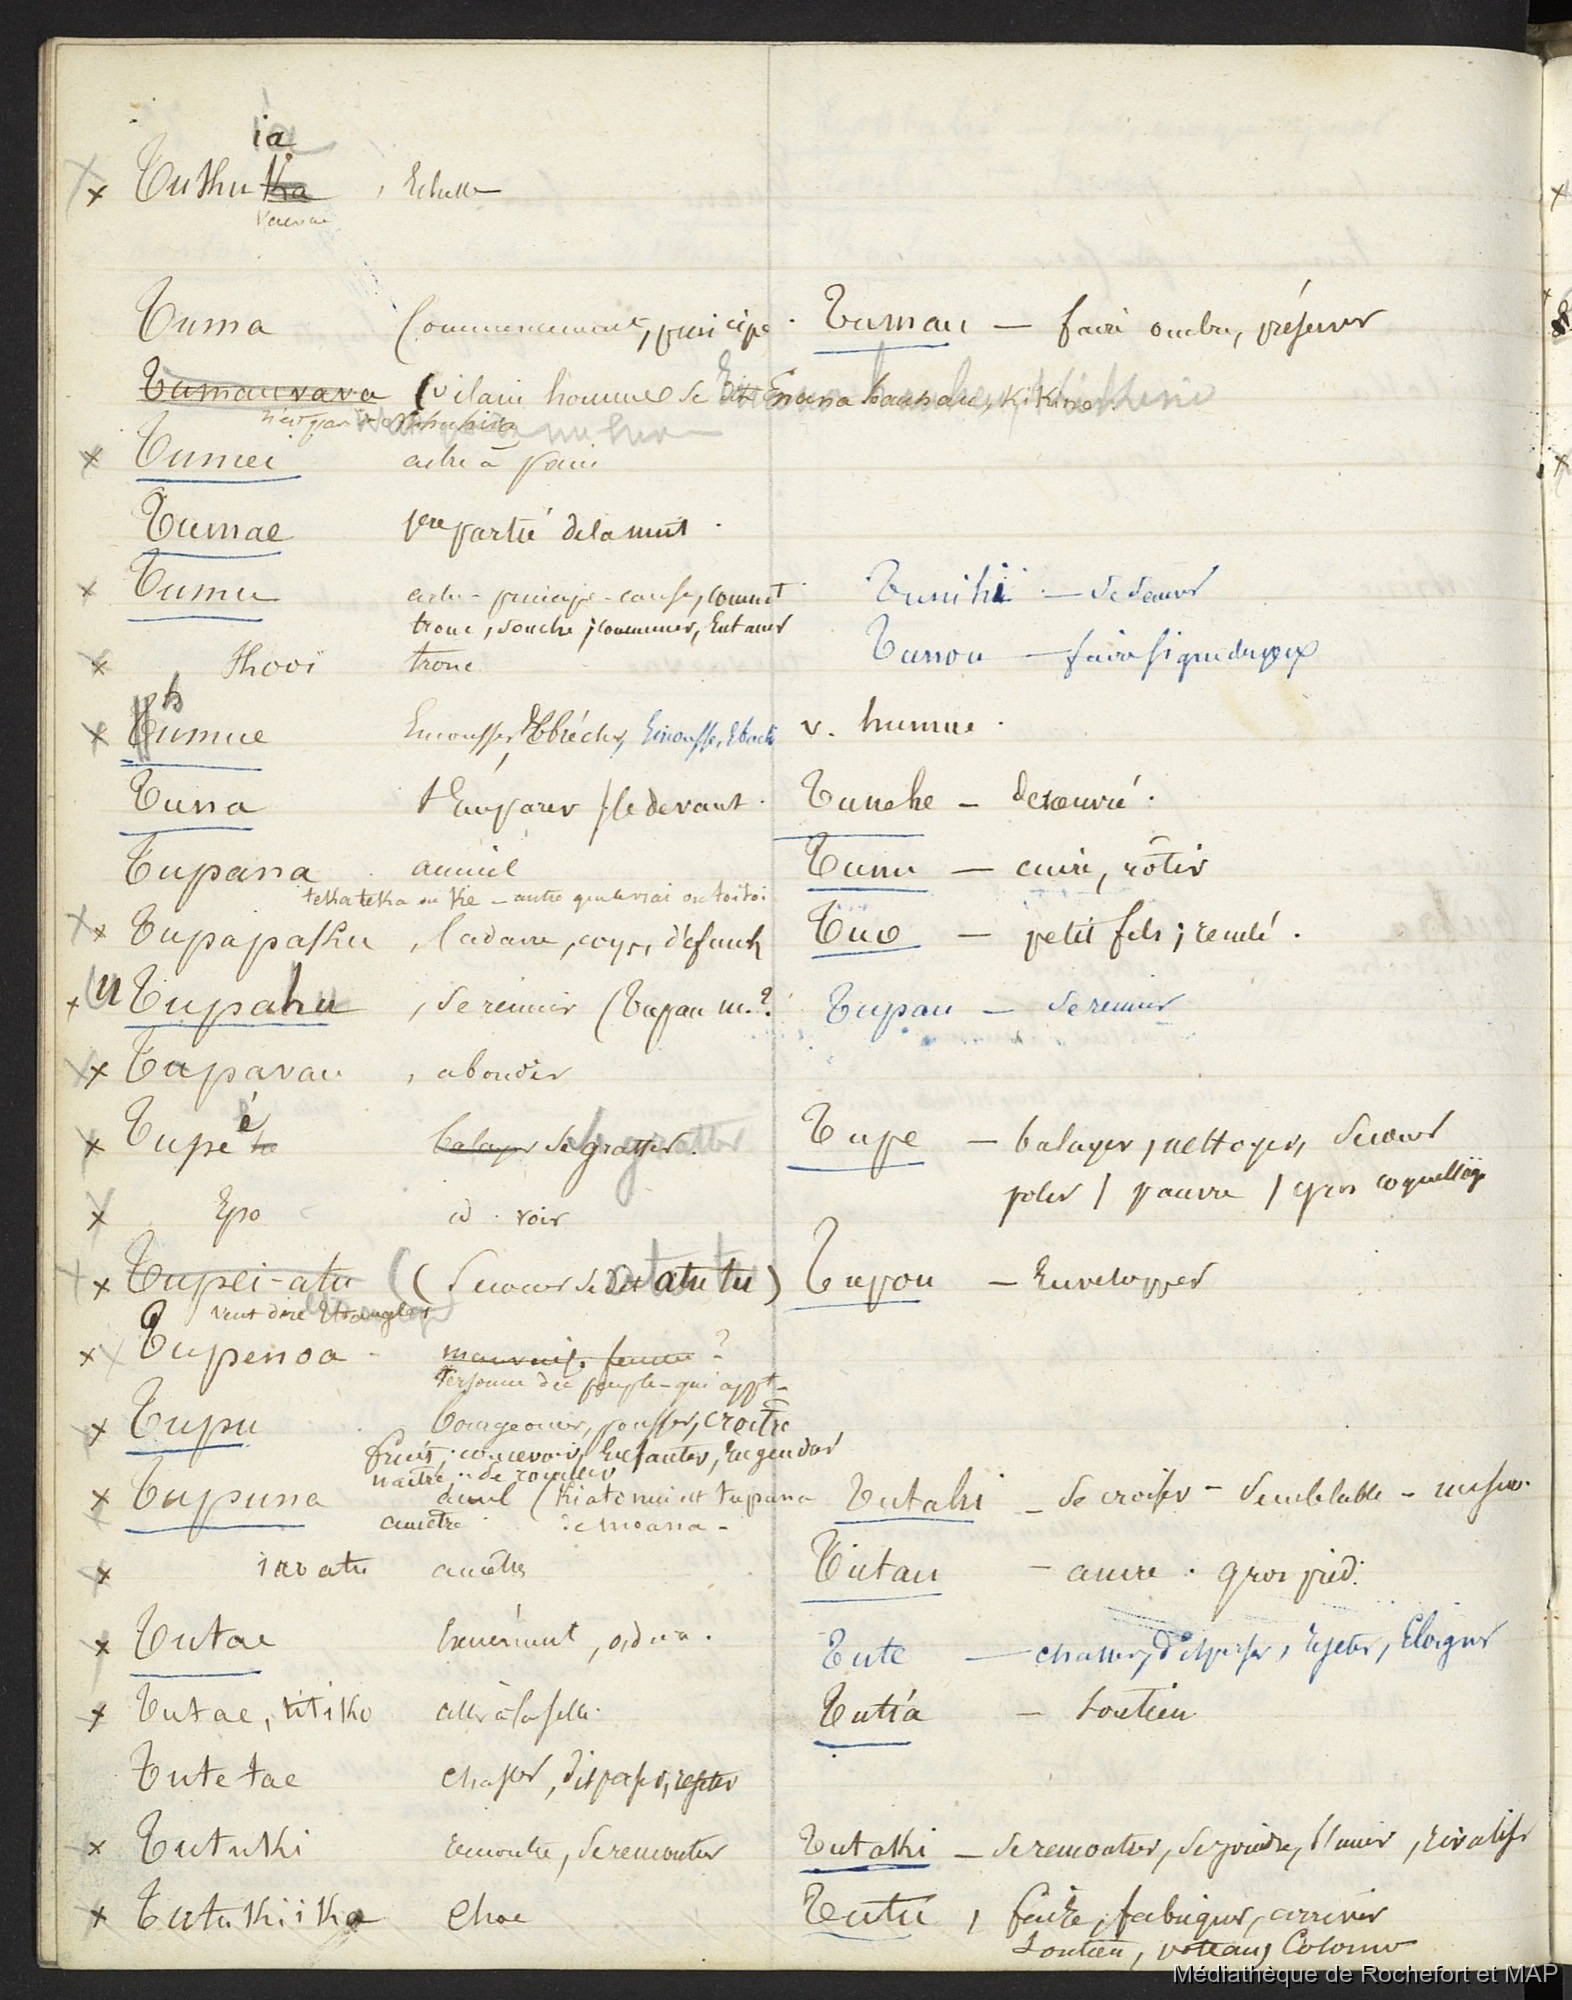 ia
× Tukuka , Echelle
Tuma Commencement, principe . Tumau — faire ombre, préserver
Tumauvava (vilain homme se dit Enana hauhau, kikino.
n'est pas
× Tumei arbre à pain
Tumae 1ere partie de la nuit .
× Tumu arbre - principe - cause, commt Tunihi — se sauver
tronc, souche ; commencer, Entamer
× Kooï tronc Tunou — faire signe des yeux
h
× Tumue Emousser, Ebrécher, Emousser, v. humue .
Tuna S'emparer / le devant . Tunehe — desoeuvré .
Tupana annuel Tunu — cuire, rôtir
teka teka ou ke — autre que le vrai ou toitoi
× Tupapaku , Cadavre, corps, défunt Tuo — petit fils ; rentré .
× Tupahu , se réunir (Tupau m.? Tupau — se réunir
× Tupavau , abonder
é
× Tupe balayer se gratter . Tupe — balayer, nettoyer, secouer
polir / pauvre / gros coquillage
× Epo id . voir
× Tupei-atu (secouer se dit atutu) Tupou — Envelopper
veut dire Etrangler
× Tupenoa - mauvaise femme ?
Personne du peuple - qui appt -
× Tupu bourgeonner, pousser, croître
fruit ; concevoir, Enfanter, Engendrer
naître
× Tupuna aieul (Kiatonui est tupuna Tutahi — se croiser - semblable - mesure.
ancetre de moana -
× ino atu ancêtre Tutau — ancre . gros pied .
× Tutae Excrément, ordure . Tute — chasser, disperser, rejeter, Eloigner
× Tutae, titiko aller à la selle . Tutía — soutien
Tutetae chasser, disperser, rejeter
× Tutuki rencontre, se rencontrer Tutaki — se rencontrer, se joindre, s'unir, rivaliser
× Tutukiika choc Tutu , faire, fabriquer, arriver
soutien, poteau, Colonne
Médiathèque de Rochefort et MAP